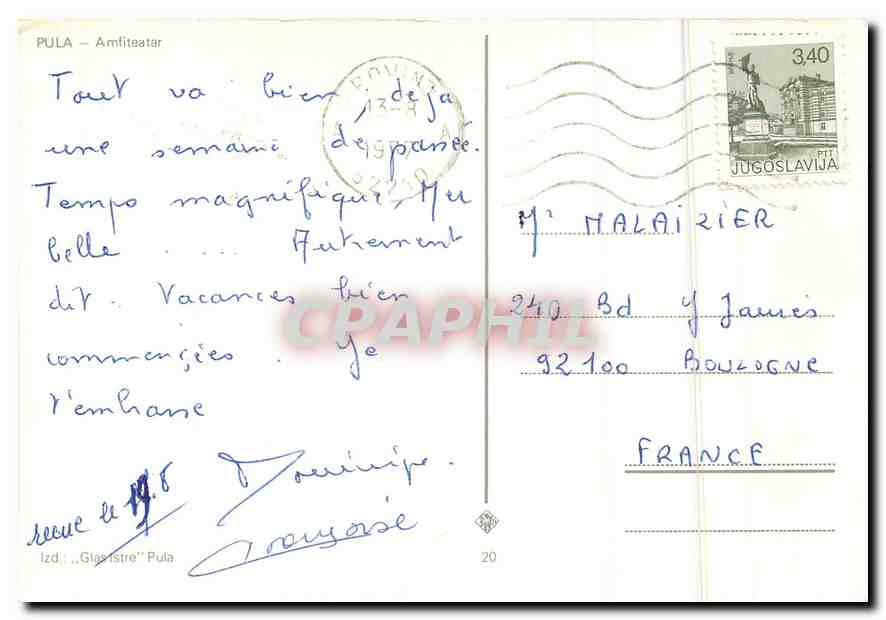 PULA – Amfiteatar
Tout va bien, déjà
une semaine de passée.
Temps magnifique, Mer
belle .... Autrement
dit. Vacances bien
commencées. Je
t'embrasse
Dominique.
Françoise
recue le 19.8
Izd.: „Glas Istre" Pula
20
ROVINJ
13-8
52210
3,40
PTT
JUGOSLAVIJA
Mr MALAIZIER
240 Bd J Jaurès
92100 BOULOGNE
FRANCE
CPAPHIL